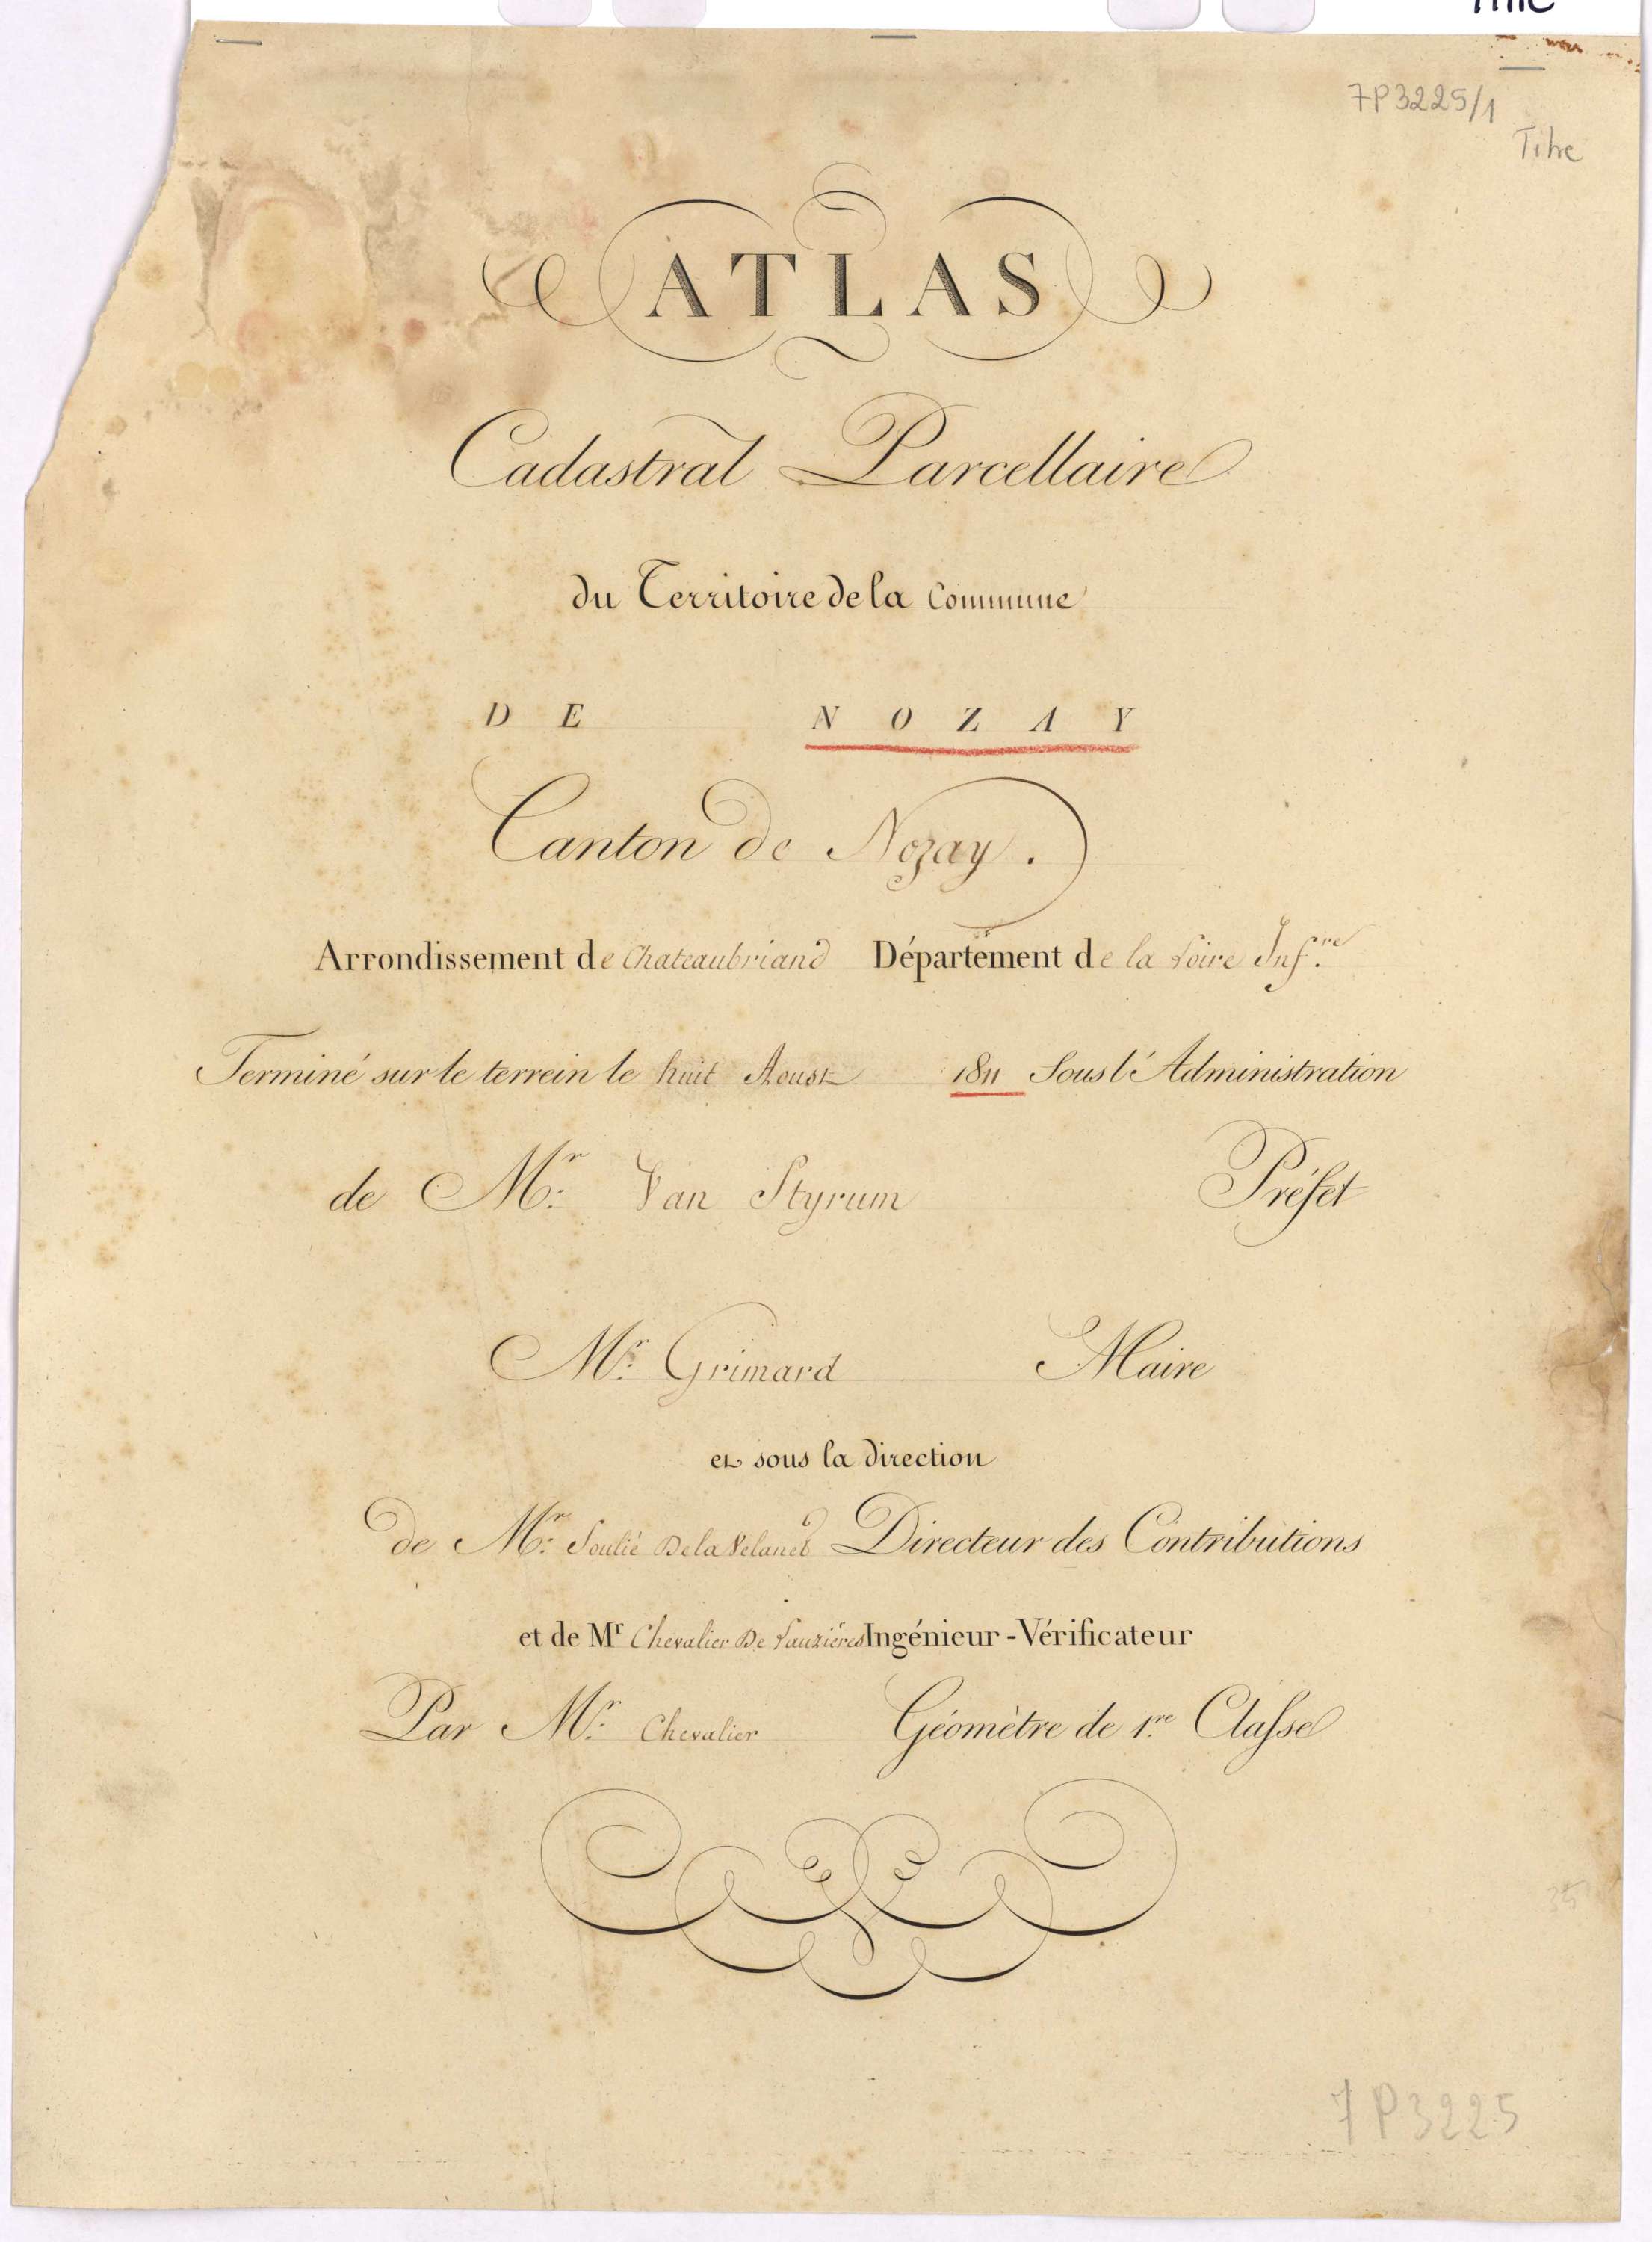 7P3225/1
Titre
ATLAS
Cadastral Parcellaire
du Territoire de la Commune
DE NOZAY
Canton de Nozay.
Arrondissement de Chateaubriand Département de la Loire Inf.re
Terminé sur le terrein le huit Aoust 1811 Sous l'Administration
de Mr. Van Styrum Préfet
Mr. Grimard Maire
et sous la direction
de Mr. Soulié De la Directeur des Contributions
et de Mr Chevalier De Lauzières Ingénieur-Vérificateur
Par Mr. Chevalier Géomètre de 1.re Classe
7P3225